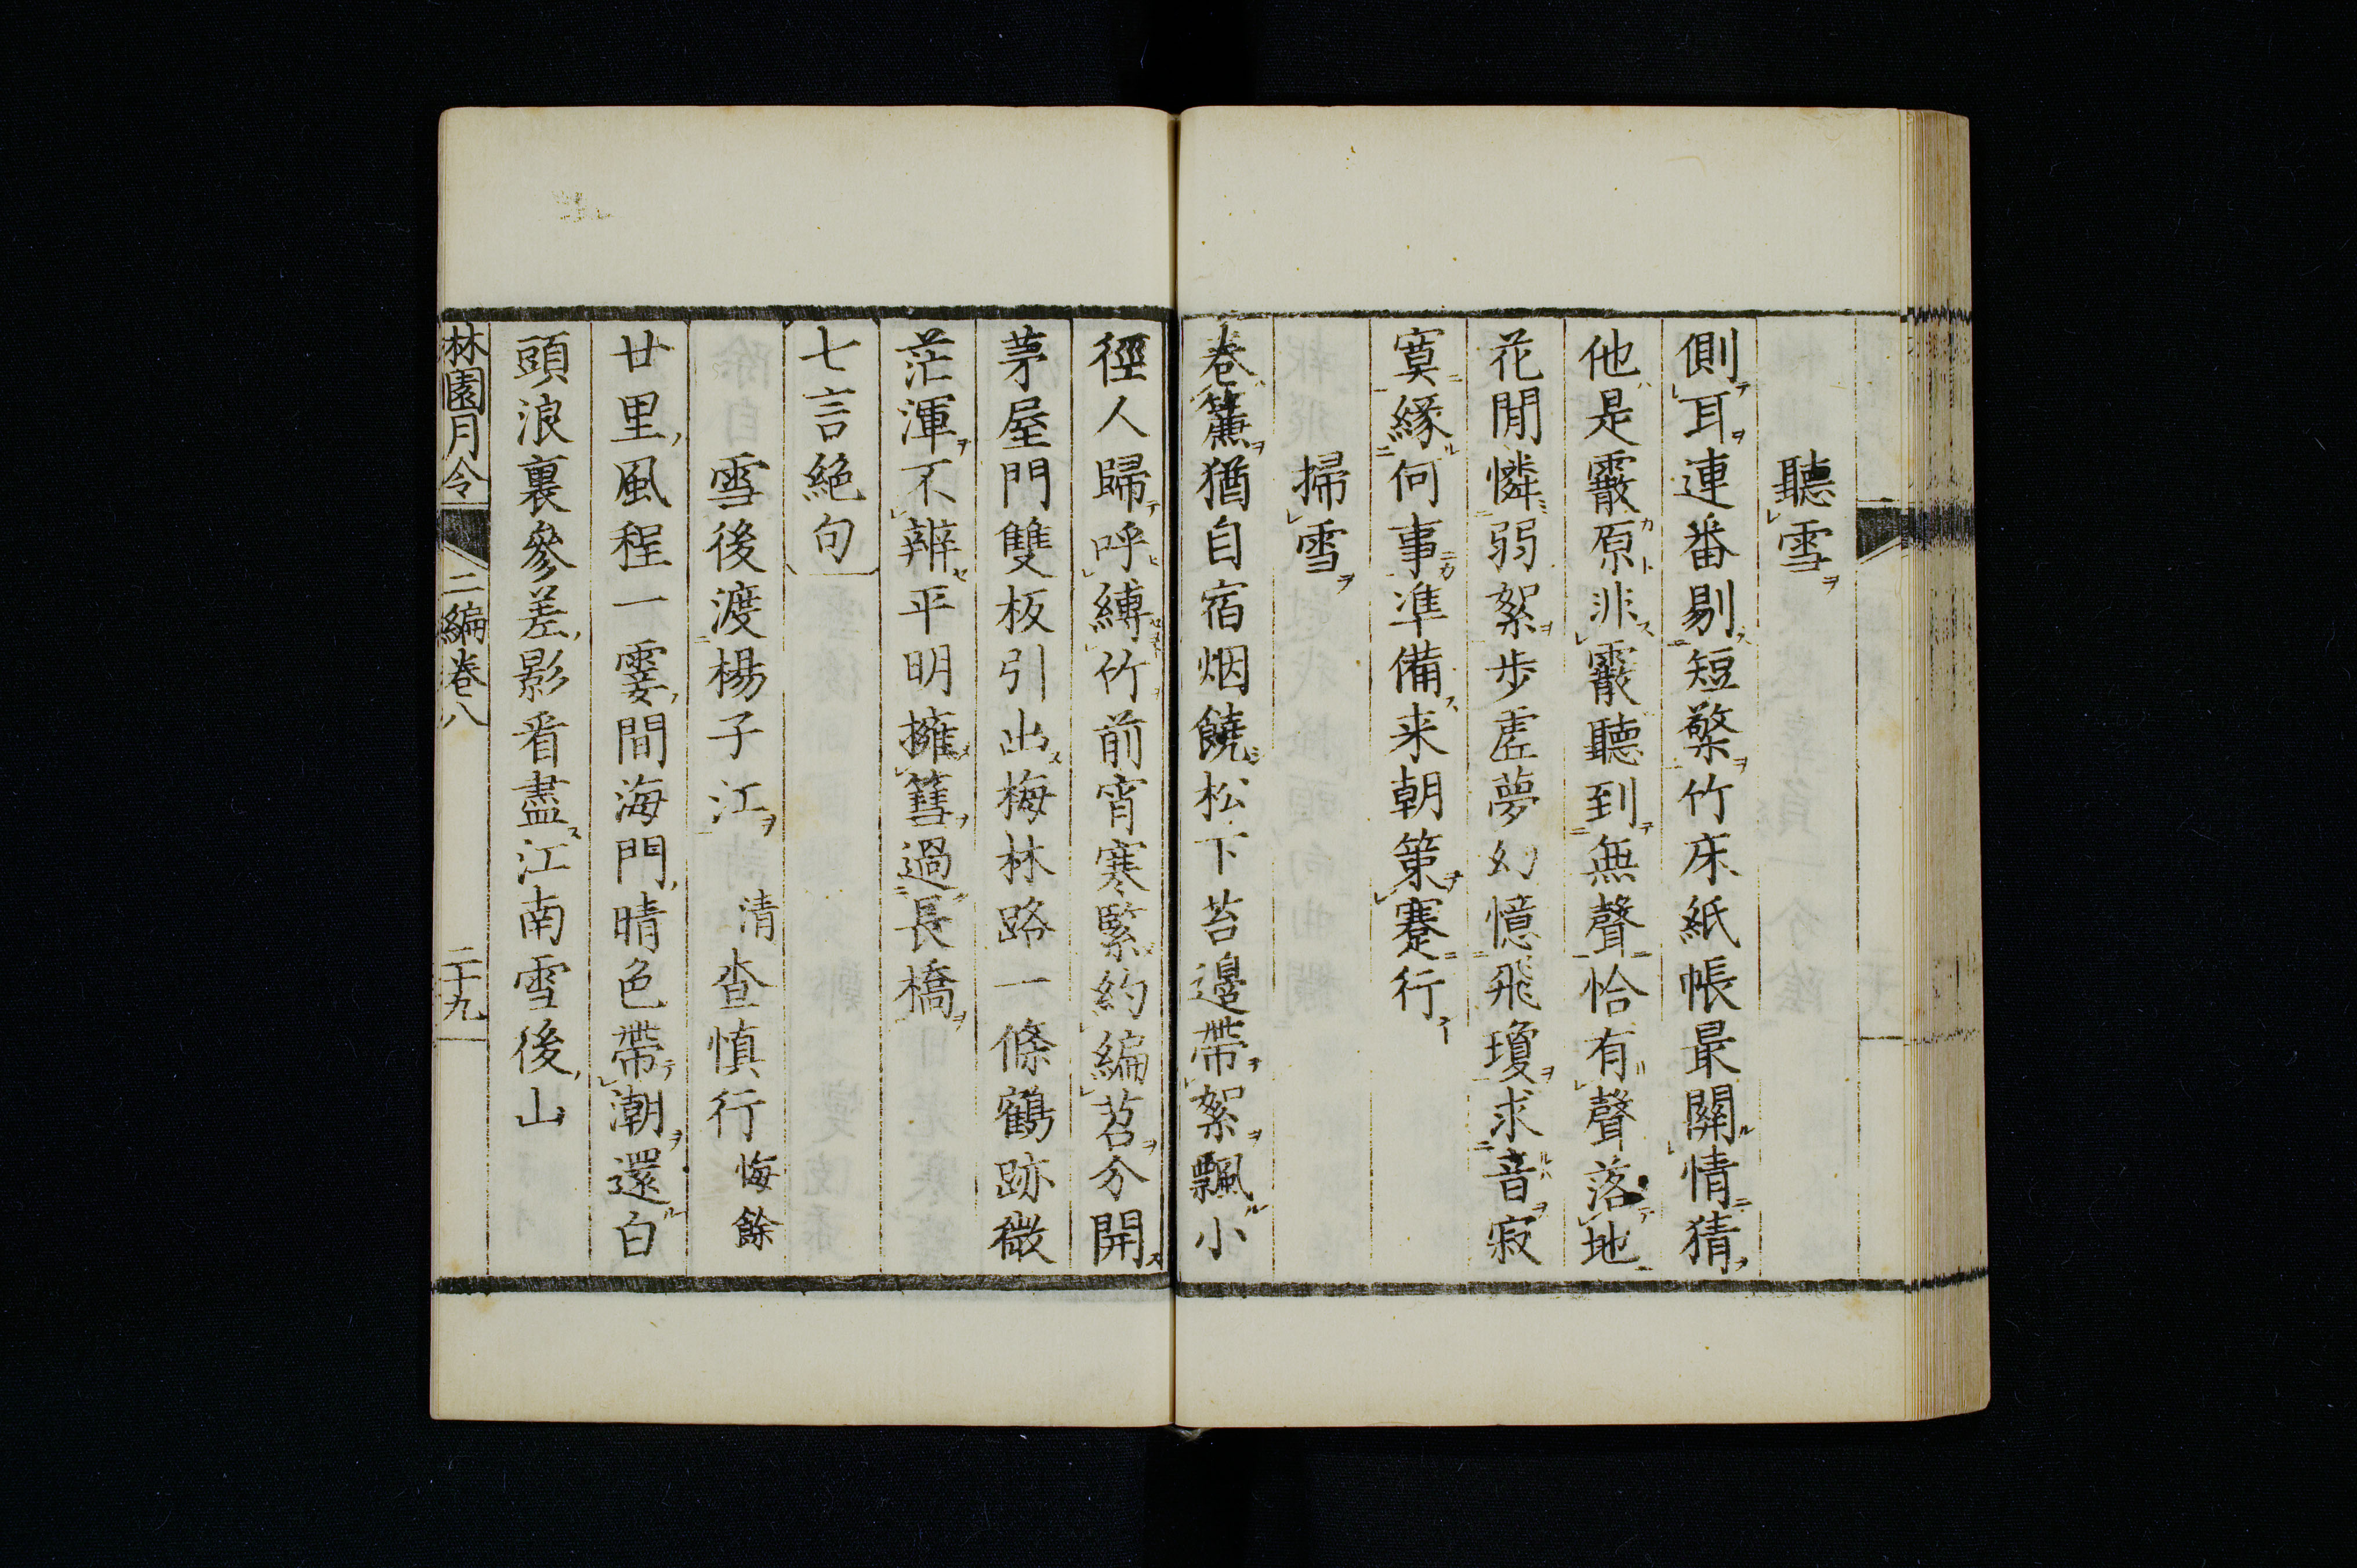 聽雪
側耳連番剔短檠竹床紙帳最關情猜
他是霰原非霰聽到無聲恰有聲落地
花閒憐弱絮步虛夢幻憶飛瓊求音寂
寞緣何事準備来朝策蹇行
掃雪
卷簾猶自宿烟饒松下苔邊帶絮飄小
徑人歸呼縛竹前宵寒緊約編苕分開
茅屋門雙板引出梅林路一條鶴跡微
茫渾不辨平明擁篲過長橋
七言絶句
雪後渡楊子江 清 查慎行 悔餘
廿里風程一霎間海門晴色帶潮還白
頭浪裏參差影看盡江南雪後山
林園月令 二編卷八 二十九